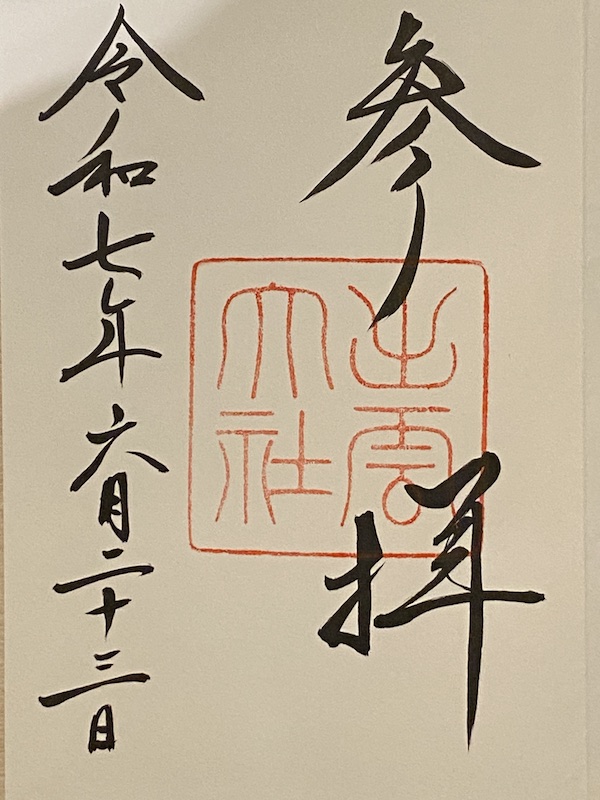 参拝
出雲
大社
令和七年六月二十三日